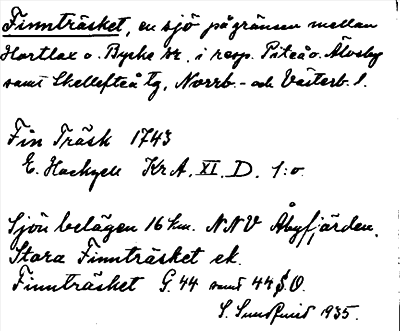 Finnträsket, en sjö på gränsen mellan
Hortlax o. Byske sr. i resp. Piteå o. Älvsby
samt Skellefteå tg, Norrb.- och Västerb. l.
Fin Träsk 1743
E. Hackzell KrA. XI. D. 1:o
Sjön belägen 16 km. NNV Åbyfjärden.
Stora Finnträsket ek.
Finnträsket G. 44 samt 44 S.O.
S. Sundqvist 1935.